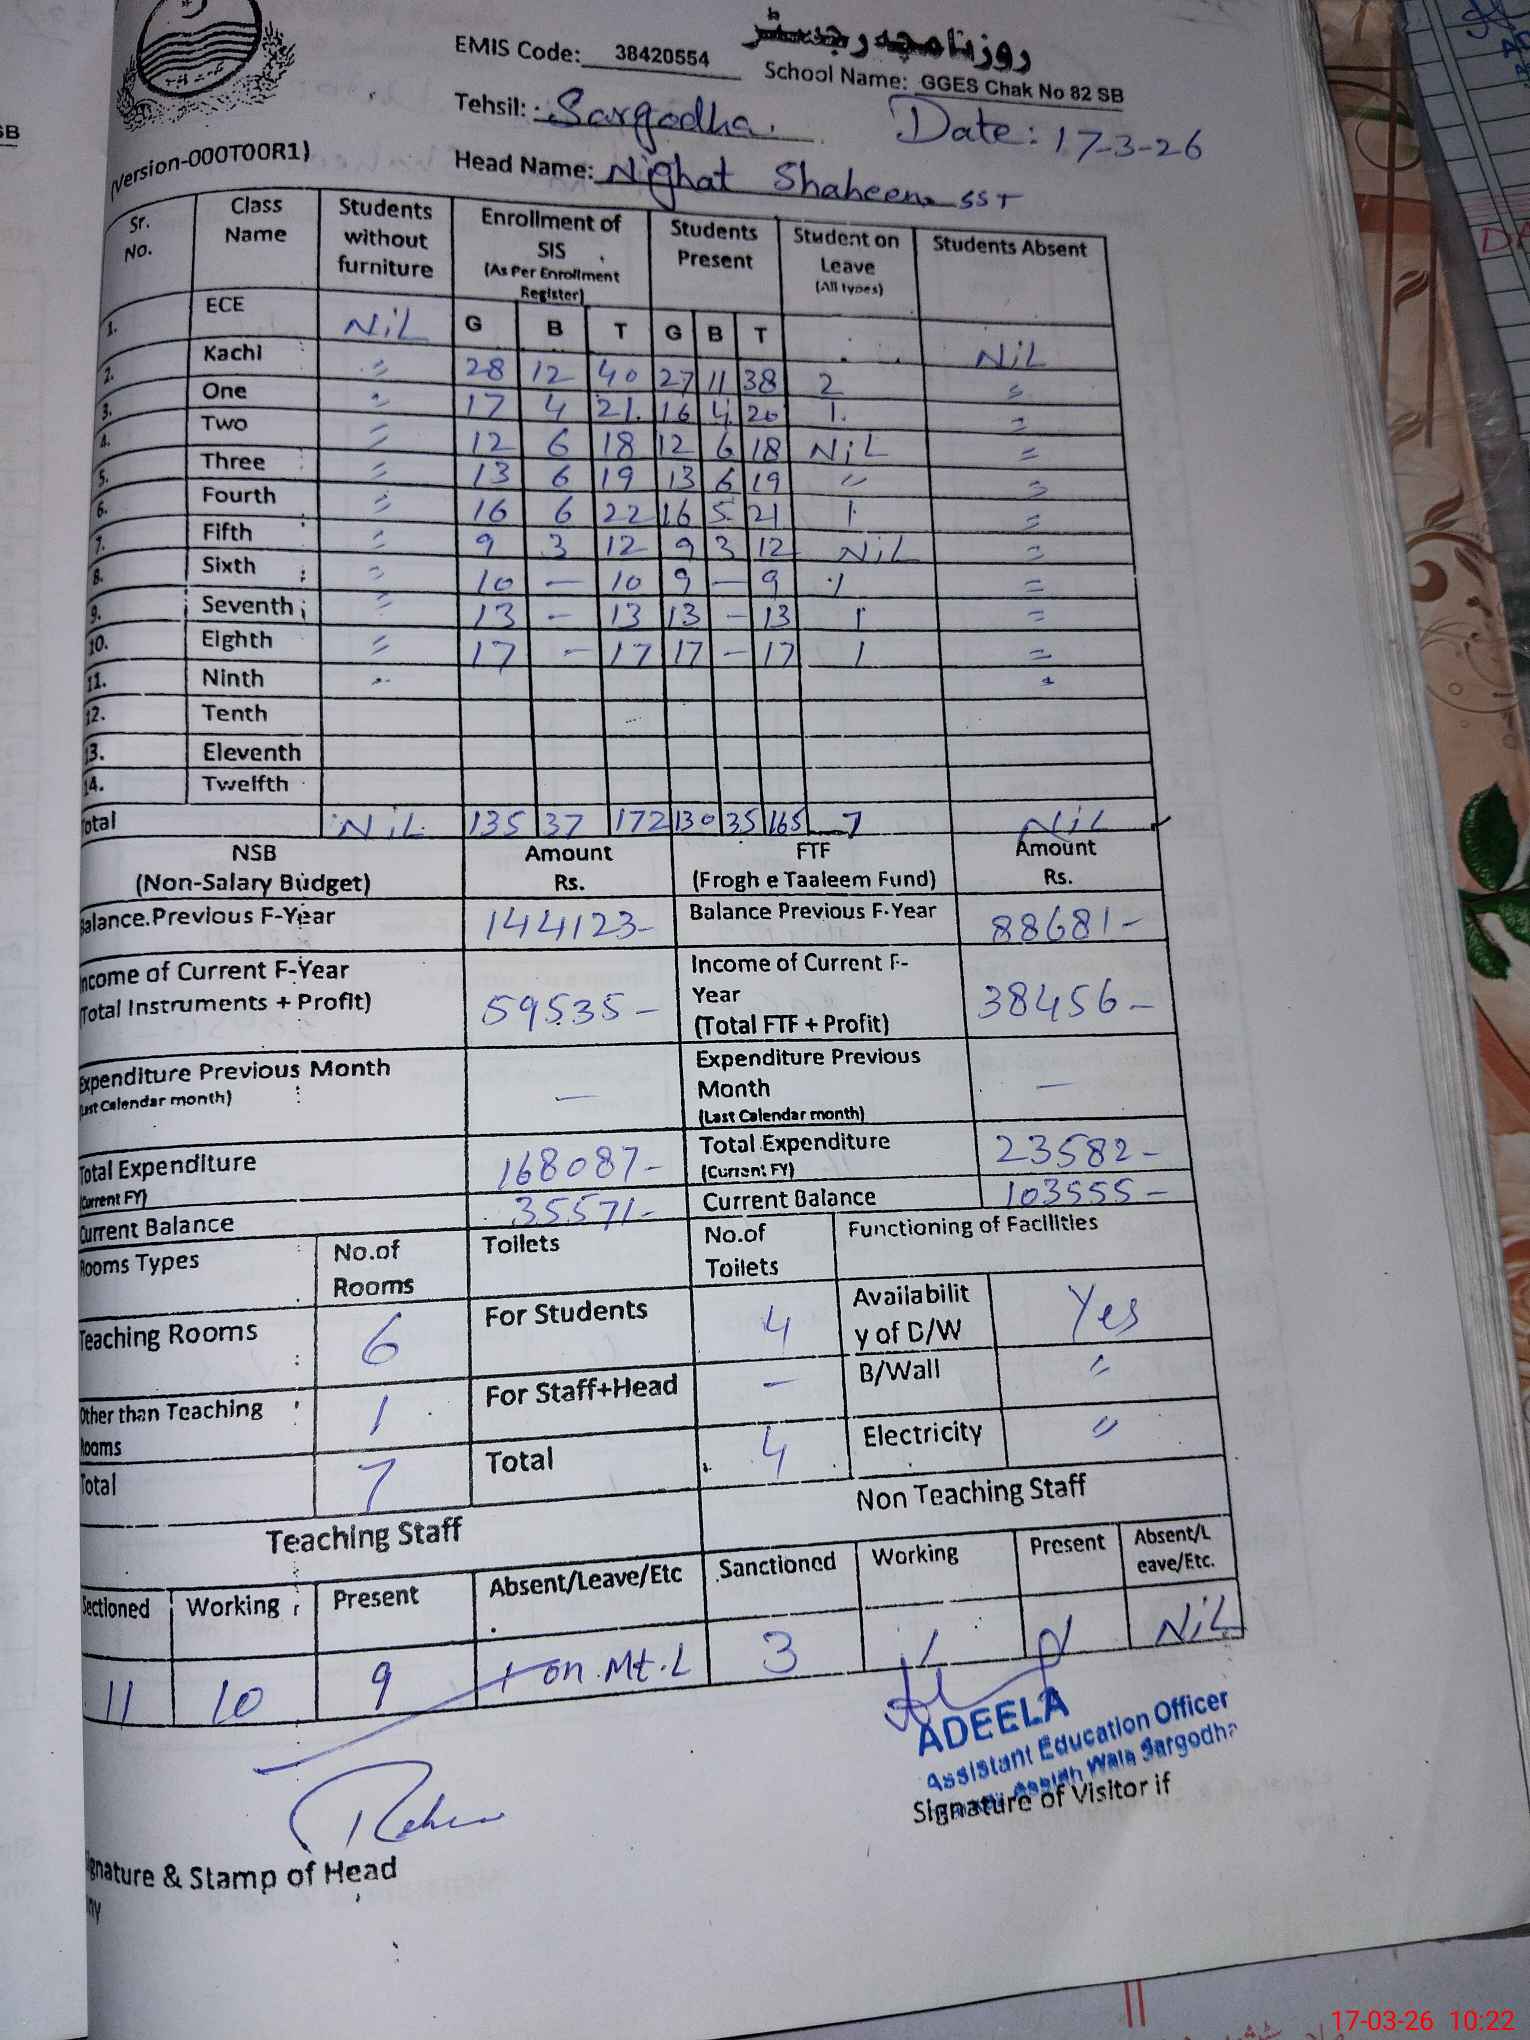 روزنامچہ رجسٹر
EMIS Code: 38420554
School Name: GGES Chak No 82 SB
Tehsil: Sargodha.
Date: 17-3-26
(Version-000T00R1)
Head Name: Nighat Shaheen SST
Sr. No. Class Name Students without furniture Enrollment of SIS (As Per Enrollment Register) Students Present Student on Leave (All types) Students Absent
1. ECE NiL G B T G B T NiL
2. Kachi " 28 12 40 27 11 38 2 "
3. One " 17 4 21. 16 4 20 1. "
4. Two " 12 6 18 12 6 18 NiL "
5. Three " 13 6 19 13 6 19 " "
6. Fourth " 16 6 22 16 5 21 1 "
7. Fifth " 9 3 12 9 3 12 NiL "
8. Sixth " 10 — 10 9 — 9 1 "
9. Seventh " 13 - 13 13 - 13 1 "
10. Eighth " 17 - 17 17 - 17 1 "
11. Ninth
12. Tenth
13. Eleventh
14. Twelfth
Total NiL 135 37 172 130 35 165 7 NiL
NSB (Non-Salary Budget) Amount Rs. FTF (Frogh e Taaleem Fund) Amount Rs.
Balance.Previous F-Year 144123- Balance Previous F-Year 88681-
Income of Current F-Year (Total Instruments + Profit) 59535- Income of Current F-Year (Total FTF + Profit) 38456-
Expenditure Previous Month (Last Calendar month) — Expenditure Previous Month (Last Calendar month) —
Total Expenditure (Current FY) 168087- Total Expenditure (Current FY) 23582-
Current Balance 35571- Current Balance 103555-
Rooms Types No.of Rooms Toilets No.of Toilets Functioning of Facilities
Teaching Rooms 6 For Students 4 Availability of D/W Yes
Other than Teaching Rooms 1 For Staff+Head - B/Wall "
Total 7 Total 4 Electricity "
Teaching Staff Non Teaching Staff
Sectioned Working Present Absent/Leave/Etc Sanctioned Working Present Absent/Leave/Etc.
11 10 9 1 on Mt.L 3 1 NiL
ADEELA
Assistant Education Officer
Wala Sargodha
Signature of Visitor if
Signature & Stamp of Head
any
17-03-26 10:22